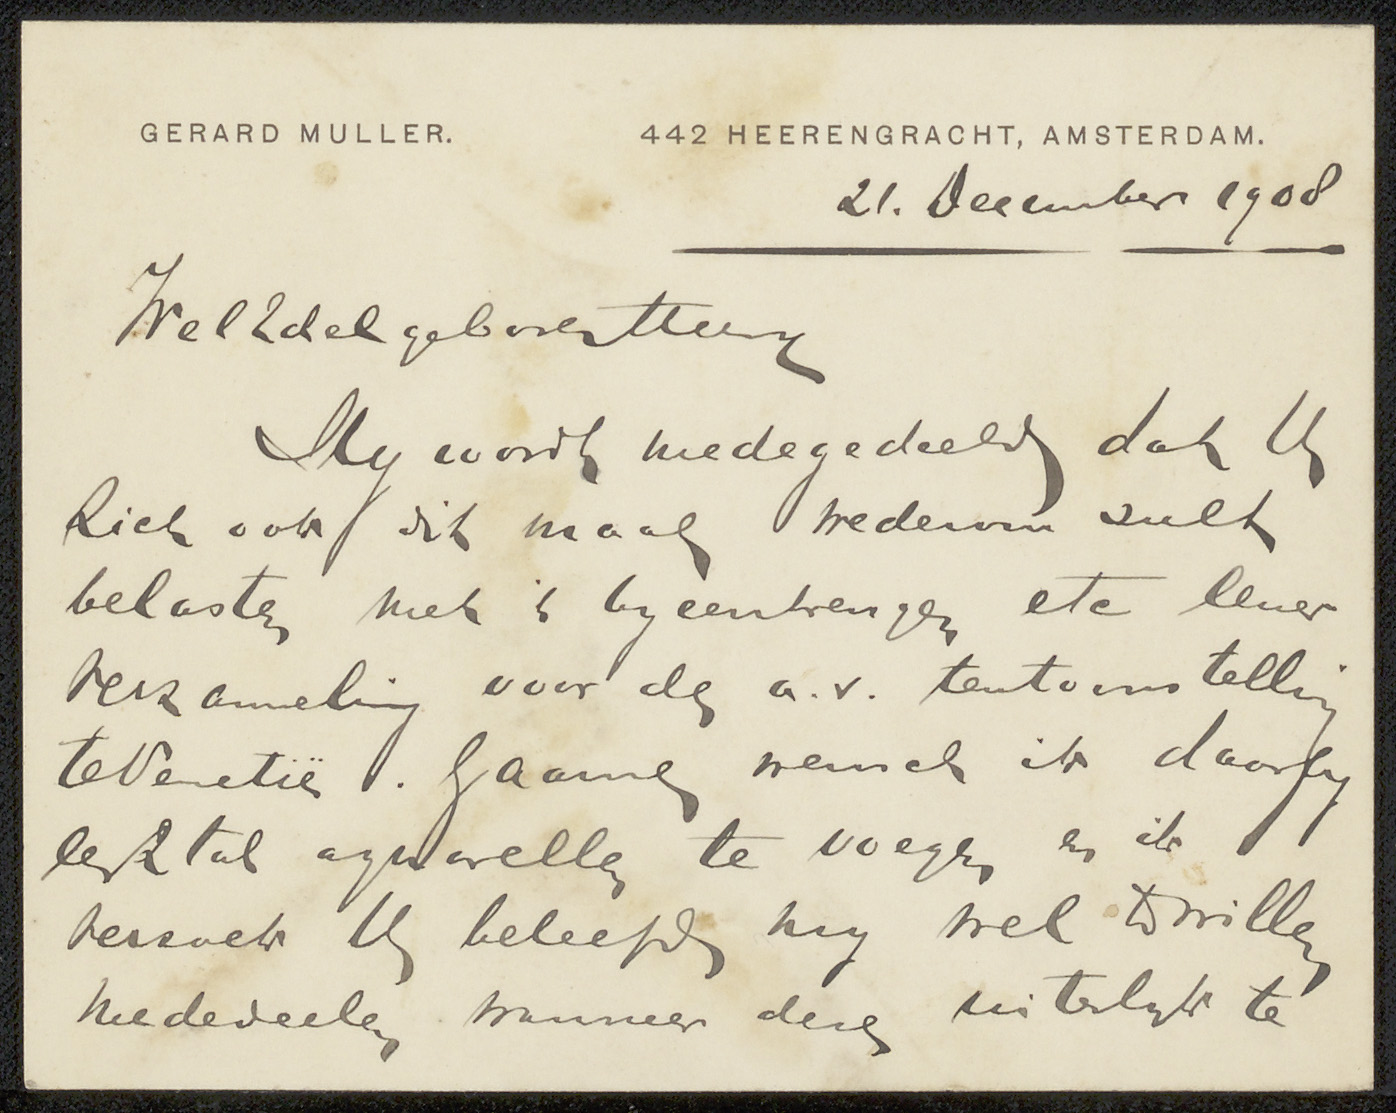 GERARD MULLER. 442 HEERENGRACHT, AMSTERDAM.
21. December 1908
WelEdelgeboren Heer
My wordt medegedeeld dat U
zich ook dit maal wederom zult
belasten met 't byeenbrengen etc eener
verzameling voor de a.s. tentoonstelling
te Venetië. Gaarne wensch ik daarby
een 2 tal aquarellen te voegen en ik
verzoek U beleefd my wel te willen
mededeelen wanneer deze uiterlyk te